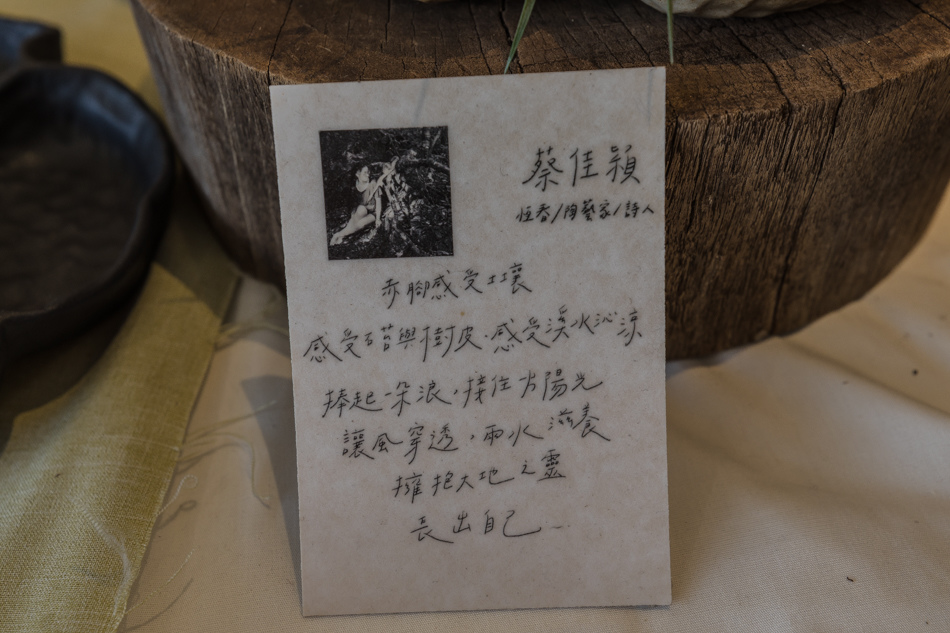 蔡佳穎
恆春/陶藝家/詩人
赤腳感受土壤
感受石苔與樹皮，感受溪水沁涼
捧起一朵浪，接住片陽光
讓風穿透，雨水滋養
擁抱大地之靈
長出自己...